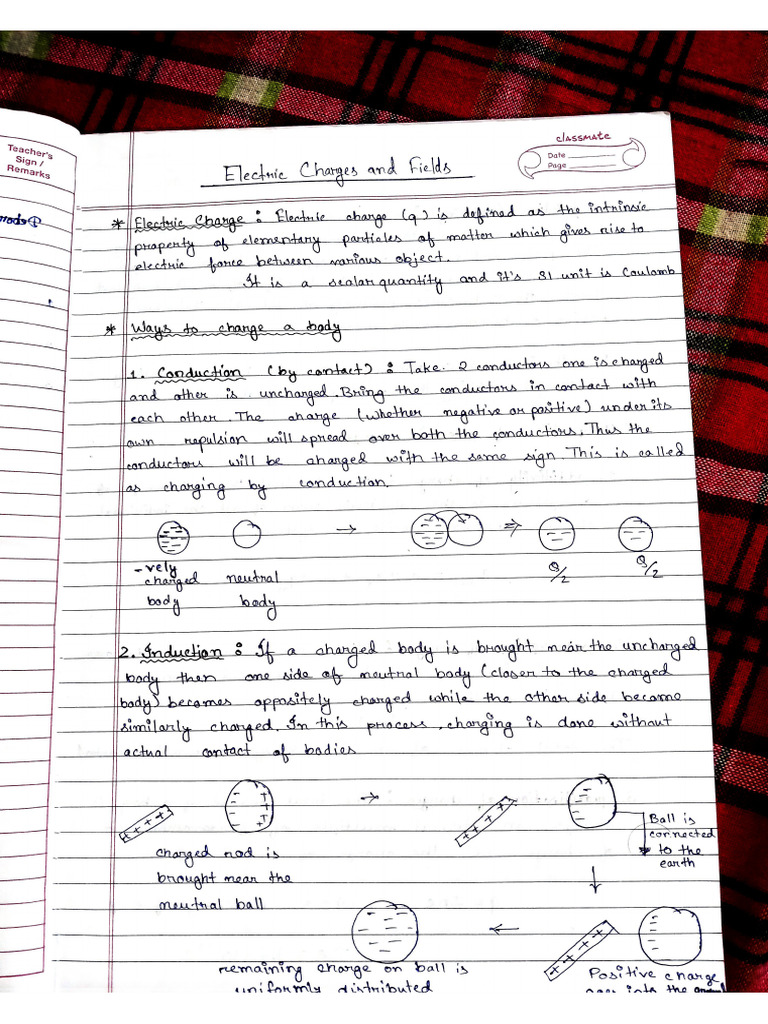 Teacher's
Sign /
Remarks
classmate
Date
Page
Electric Charges and Fields
* Electric Charge : Electric charge (q) is defined as the intrinsic
property of elementary particles of matter which gives rise to
electric force between various object.
It is a scalar quantity and it's SI unit is Coulomb
* Ways to charge a body
1. Conduction (by contact) : Take 2 conductors one is charged
and other is uncharged. Bring the conductors in contact with
each other. The charge (whether negative or positive) under its
own repulsion will spread over both the conductors. Thus the
conductors will be charged with the same sign. This is called
as charging by conduction.
→ ⇒
-vely
charged neutral
body body
Q/2 Q/2
2. Induction : If a charged body is brought near the uncharged
body then one side of neutral body (closer to the charged
body) becomes oppositely charged while the other side become
similarly charged. In this process, charging is done without
actual contact of bodies
+ + + + → + + + +
Ball is
connected
to the
earth
charged rod is
brought near the
neutral ball
+ + + +
remaining charge on ball is
uniformly distributed
Positive charge
into the